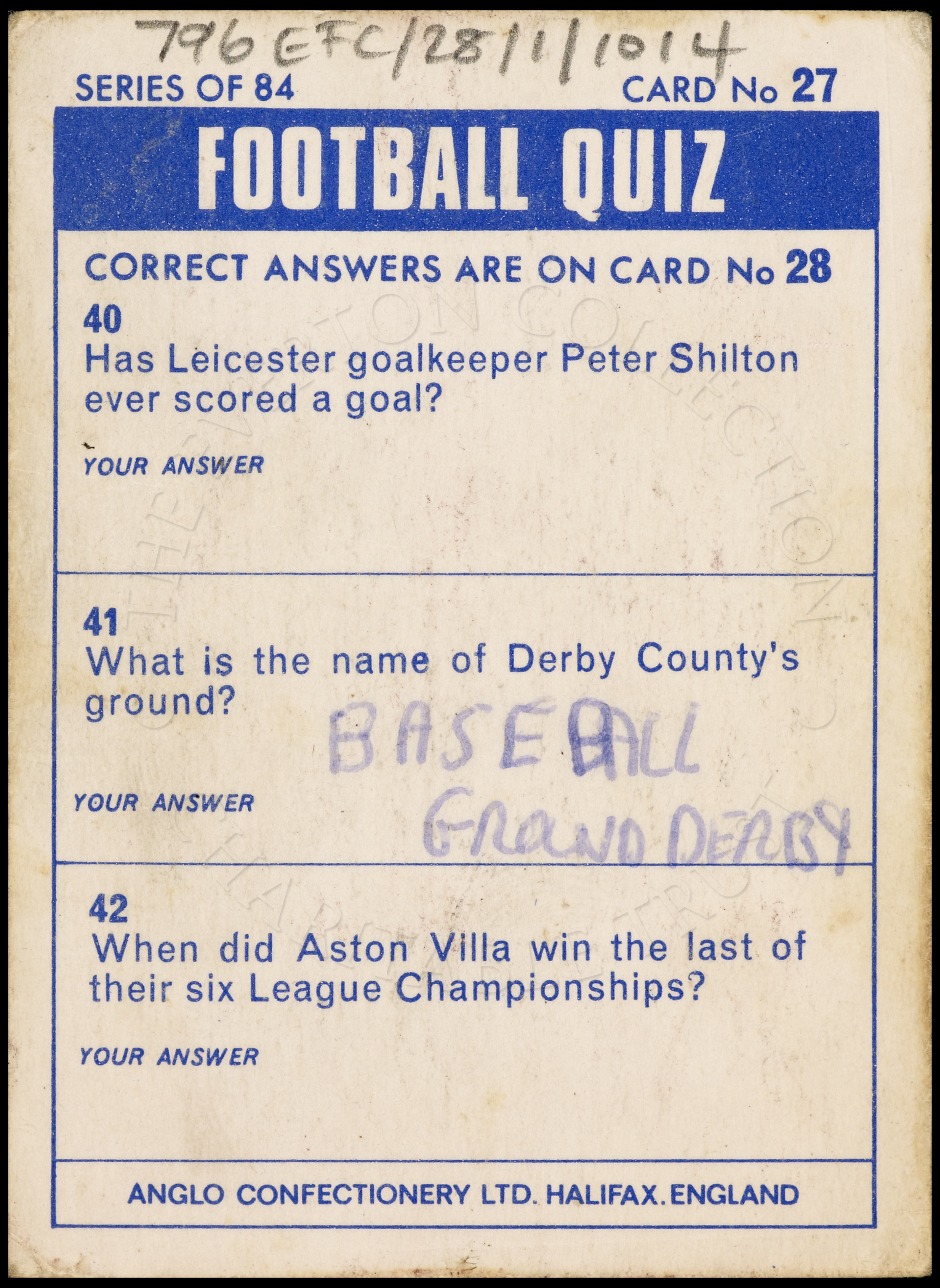 796 EFC/28/1/1014
SERIES OF 84 CARD No 27
FOOTBALL QUIZ
CORRECT ANSWERS ARE ON CARD No 28
40
Has Leicester goalkeeper Peter Shilton
ever scored a goal?
YOUR ANSWER
41
What is the name of Derby County's
ground?
BASEBALL
YOUR ANSWER
GROUND DERBY
42
When did Aston Villa win the last of
their six League Championships?
YOUR ANSWER
ANGLO CONFECTIONERY LTD. HALIFAX. ENGLAND
© THE EVERTON COLLECTION
CHARITABLE TRUST